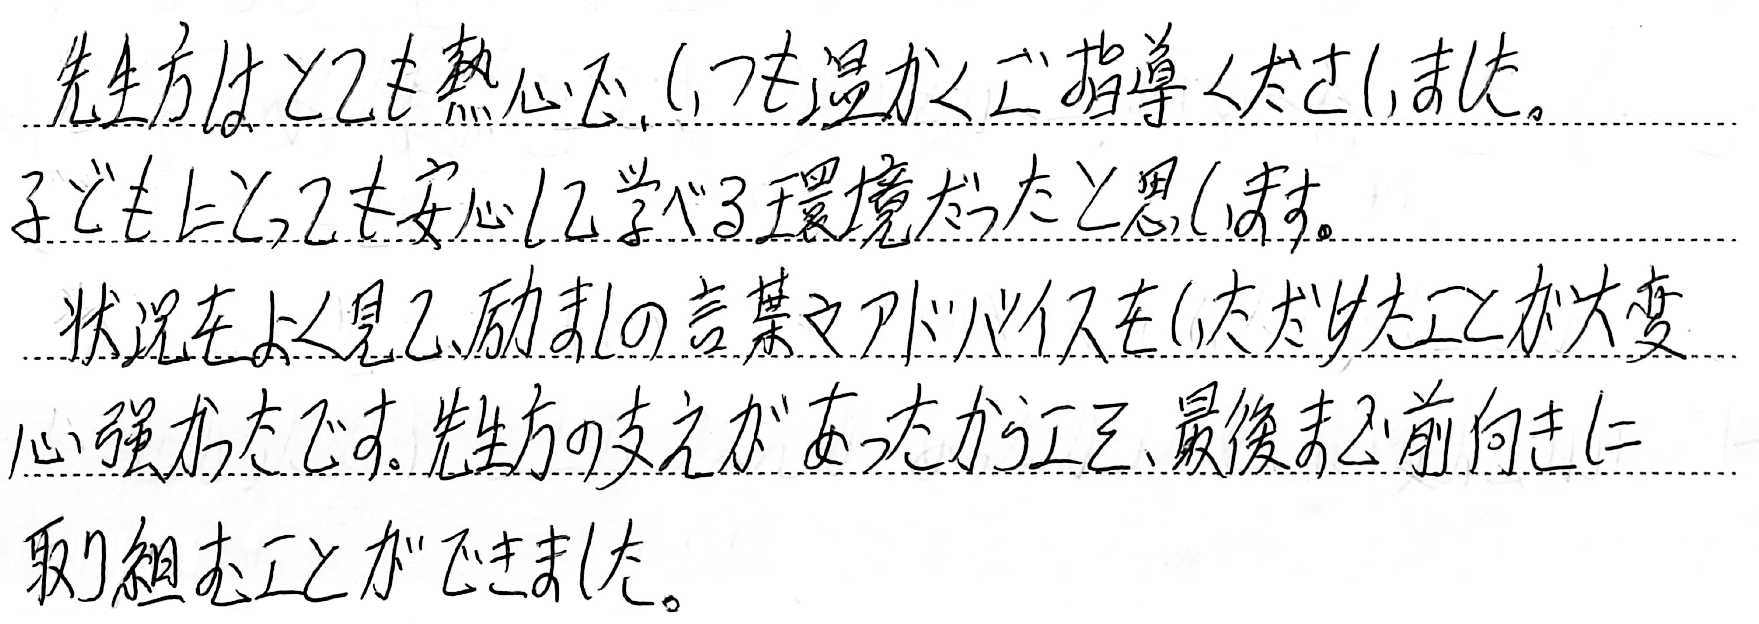 先生方はとても熱心で、いつも温かくご指導くださいました。
子どもにとっても安心して学べる環境だったと思います。
状況をよく見て、励ましの言葉やアドバイスをいただけたことが大変
心強かったです。先生方の支えがあったからこそ、最後まで前向きに
取り組むことができました。